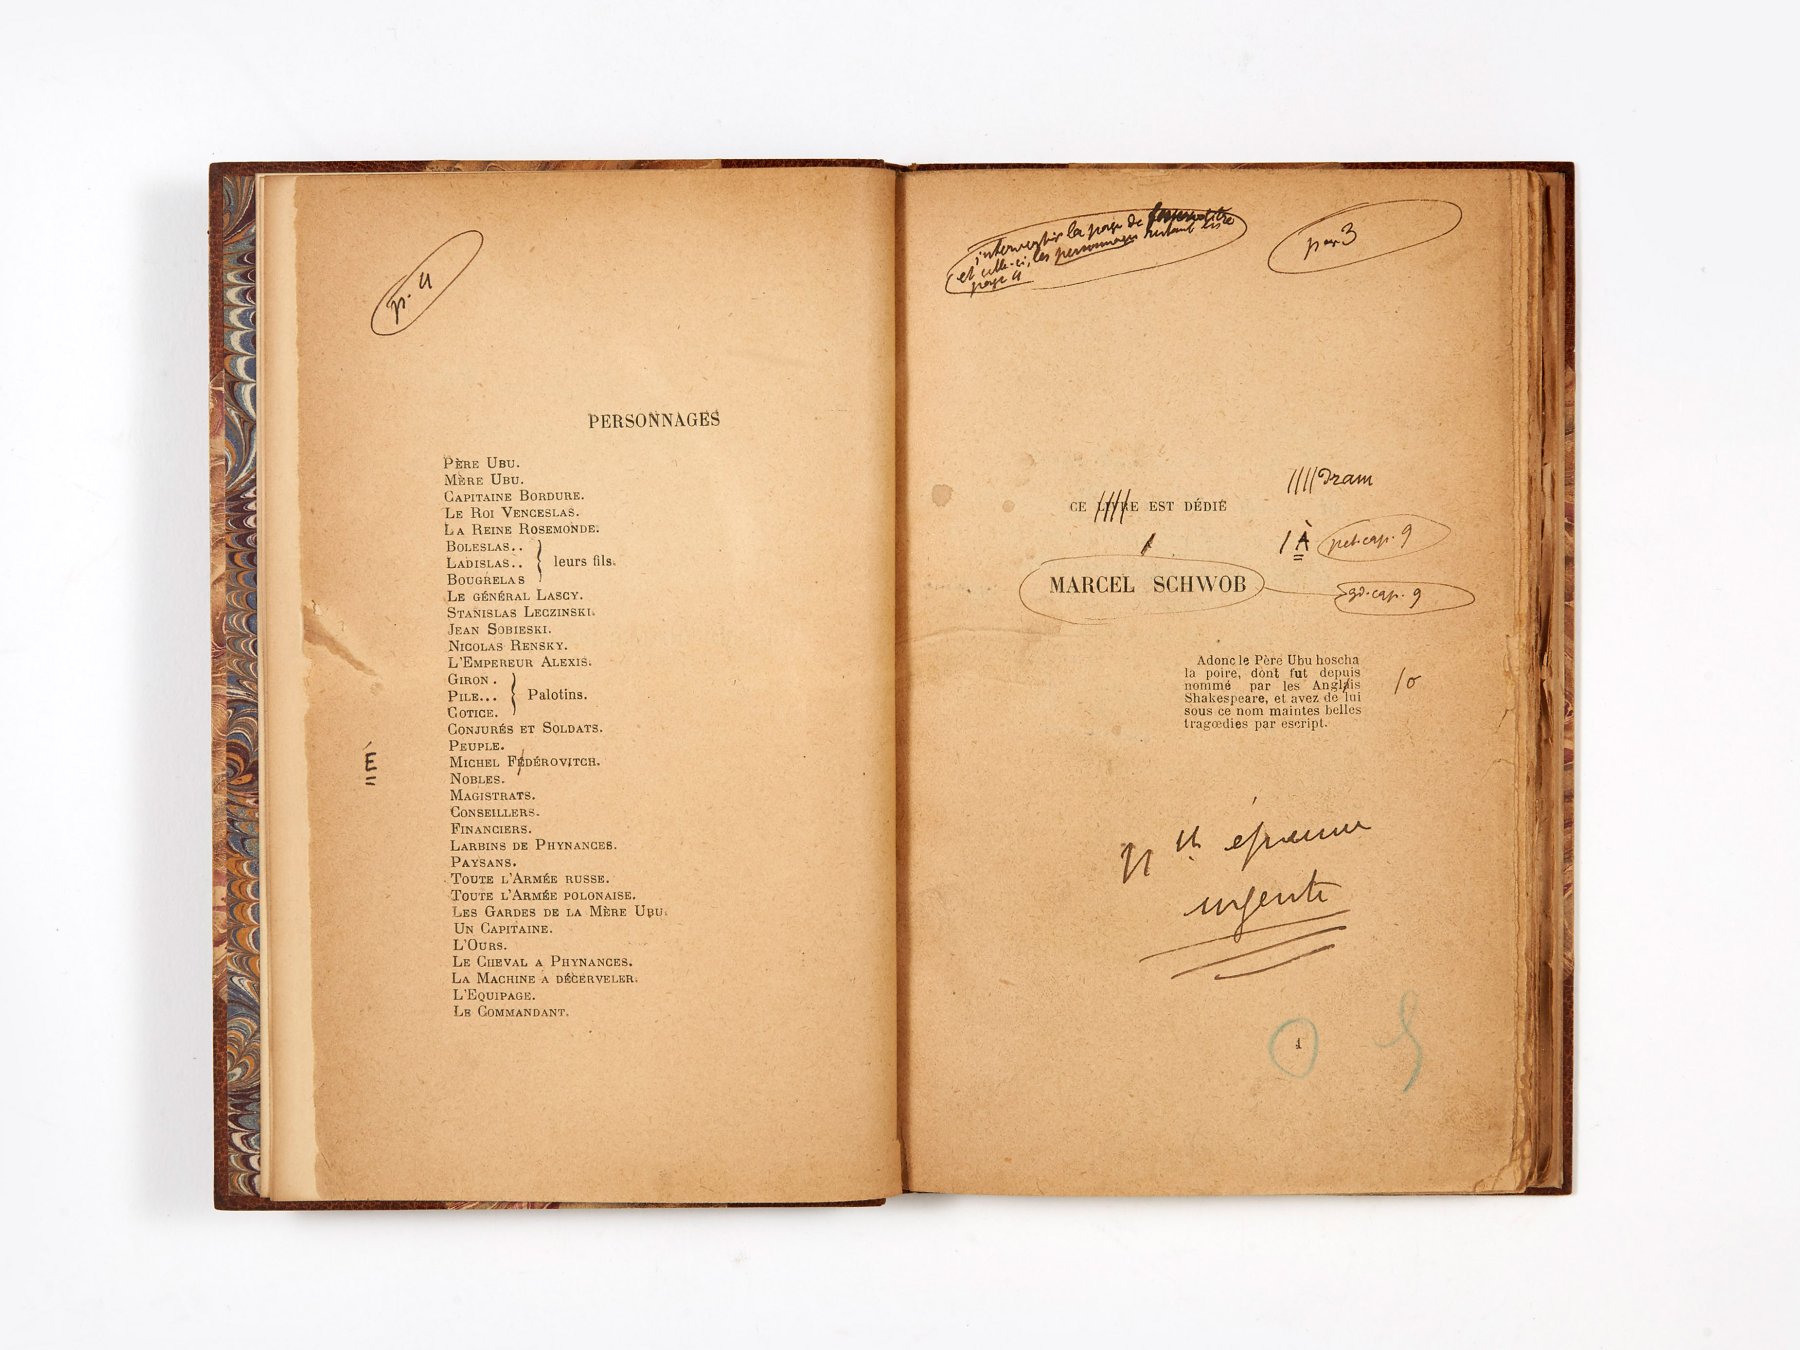 p. 4
PERSONNAGES
PÈRE UBU.
MÈRE UBU.
CAPITAINE BORDURE.
LE ROI VENCESLAS.
LA REINE ROSEMONDE.
BOLESLAS..
LADISLAS.. } leurs fils.
BOUGRELAS
LE GÉNÉRAL LASCY.
STANISLAS LECZINSKI.
JEAN SOBIESKI.
NICOLAS RENSKY.
L'EMPEREUR ALEXIS.
GIRON.
PILE... } Palotins.
COTICE.
CONJURÉS ET SOLDATS.
PEUPLE.
É MICHEL FÉDÉROVITCH.
NOBLES.
MAGISTRATS.
CONSEILLERS.
FINANCIERS.
LARBINS DE PHYNANCES.
PAYSANS.
TOUTE L'ARMÉE RUSSE.
TOUTE L'ARMÉE POLONAISE.
LES GARDES DE LA MÈRE UBU.
UN CAPITAINE.
L'OURS.
LE CHEVAL A PHYNANCES.
LA MACHINE A DÉCERVELER.
L'EQUIPAGE.
LE COMMANDANT.
intervertir la page de
et celle-ci, les personnages restant
page 4
page 3
//// Dram
CE LIVRE EST DÉDIÉ
/ À pet. cap. 9
MARCEL SCHWOB gd. cap. 9
Adonc le Père Ubu hoscha
la poire, dont fut depuis
nommé par les Anglais
Shakespeare, et avez de lui
sous ce nom maintes belles
tragœdies par escript.
/o
Nlle épreuve
urgente
1